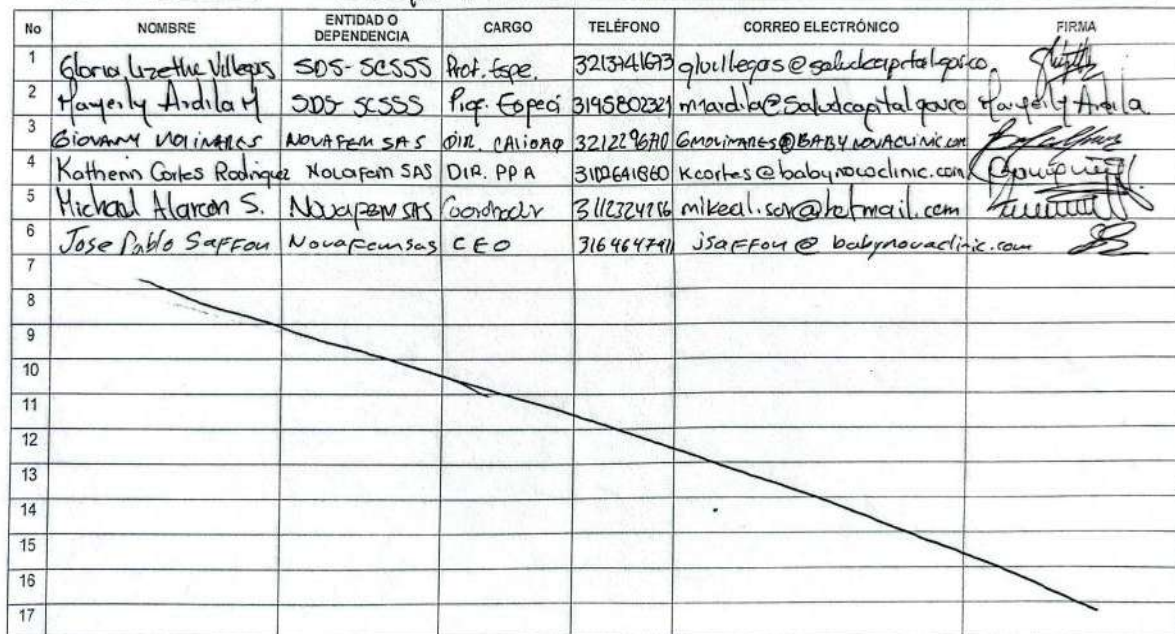 No NOMBRE ENTIDAD O DEPENDENCIA CARGO TELÉFONO CORREO ELECTRÓNICO FIRMA
1 Gloria Lizethe Villegas SDS-SCSSS Prof. Espe. 3213741673
2 Mayerly Ardila M SDS-SCSSS Prof. Especi 3195802321 Mayerly Ardila
3 GIOVANNY MOLINARES NOVAFEM SAS DIR. CALIDAD GMOLINARES@BABYNOVACLINIC.com
4 Katherin Cortes Rodriguez Novafem SAS DIR. PPA 3102641860 kcortes@babynovaclinic.com
5 Michael Alarcon S. Novafem SAS Coordinador
6 Jose Pablo Saffon Novafemsas CEO jsaffon@babynovaclinic.com
7
8
9
10
11
12
13
14
15
16
17